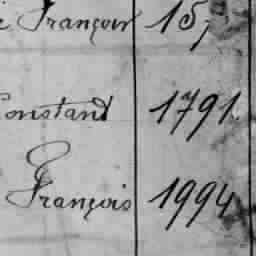 François 15,
Constand 1791.
François 1994